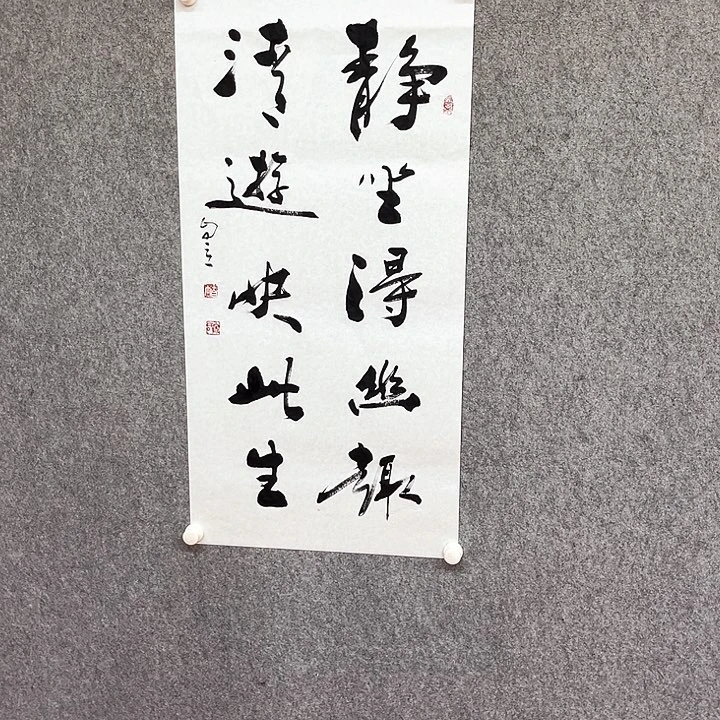 静坐得幽趣
清遊快此生